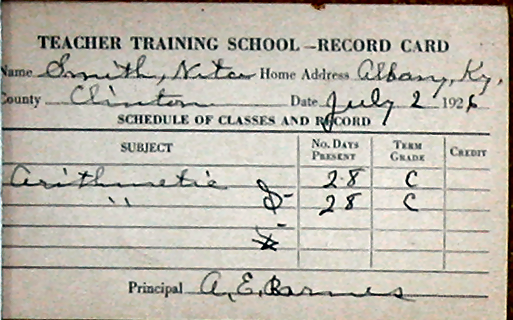 TEACHER TRAINING SCHOOL—RECORD CARD
Name Smith, Nita Home Address Albany, Ky.
County Clinton Date July 2 1926
SCHEDULE OF CLASSES AND RECORD
SUBJECT No. Days Present Term Grade Credit
Arithmetic 28 C
" 28 C
Principal A. E. Barnes